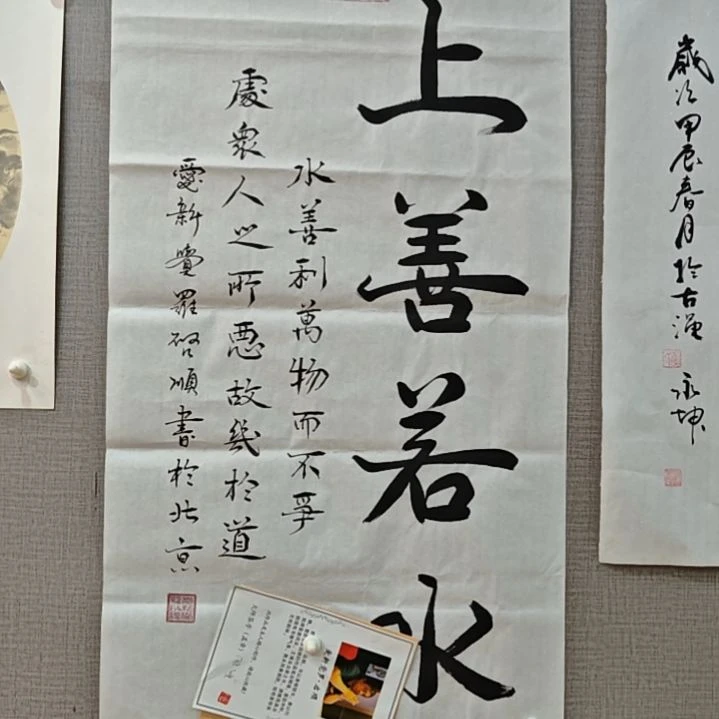 歲次甲辰春月於古
永坤
上善若水
水善利萬物而不爭
處衆人之所惡故幾於道
愛新覺羅啓順書於北京